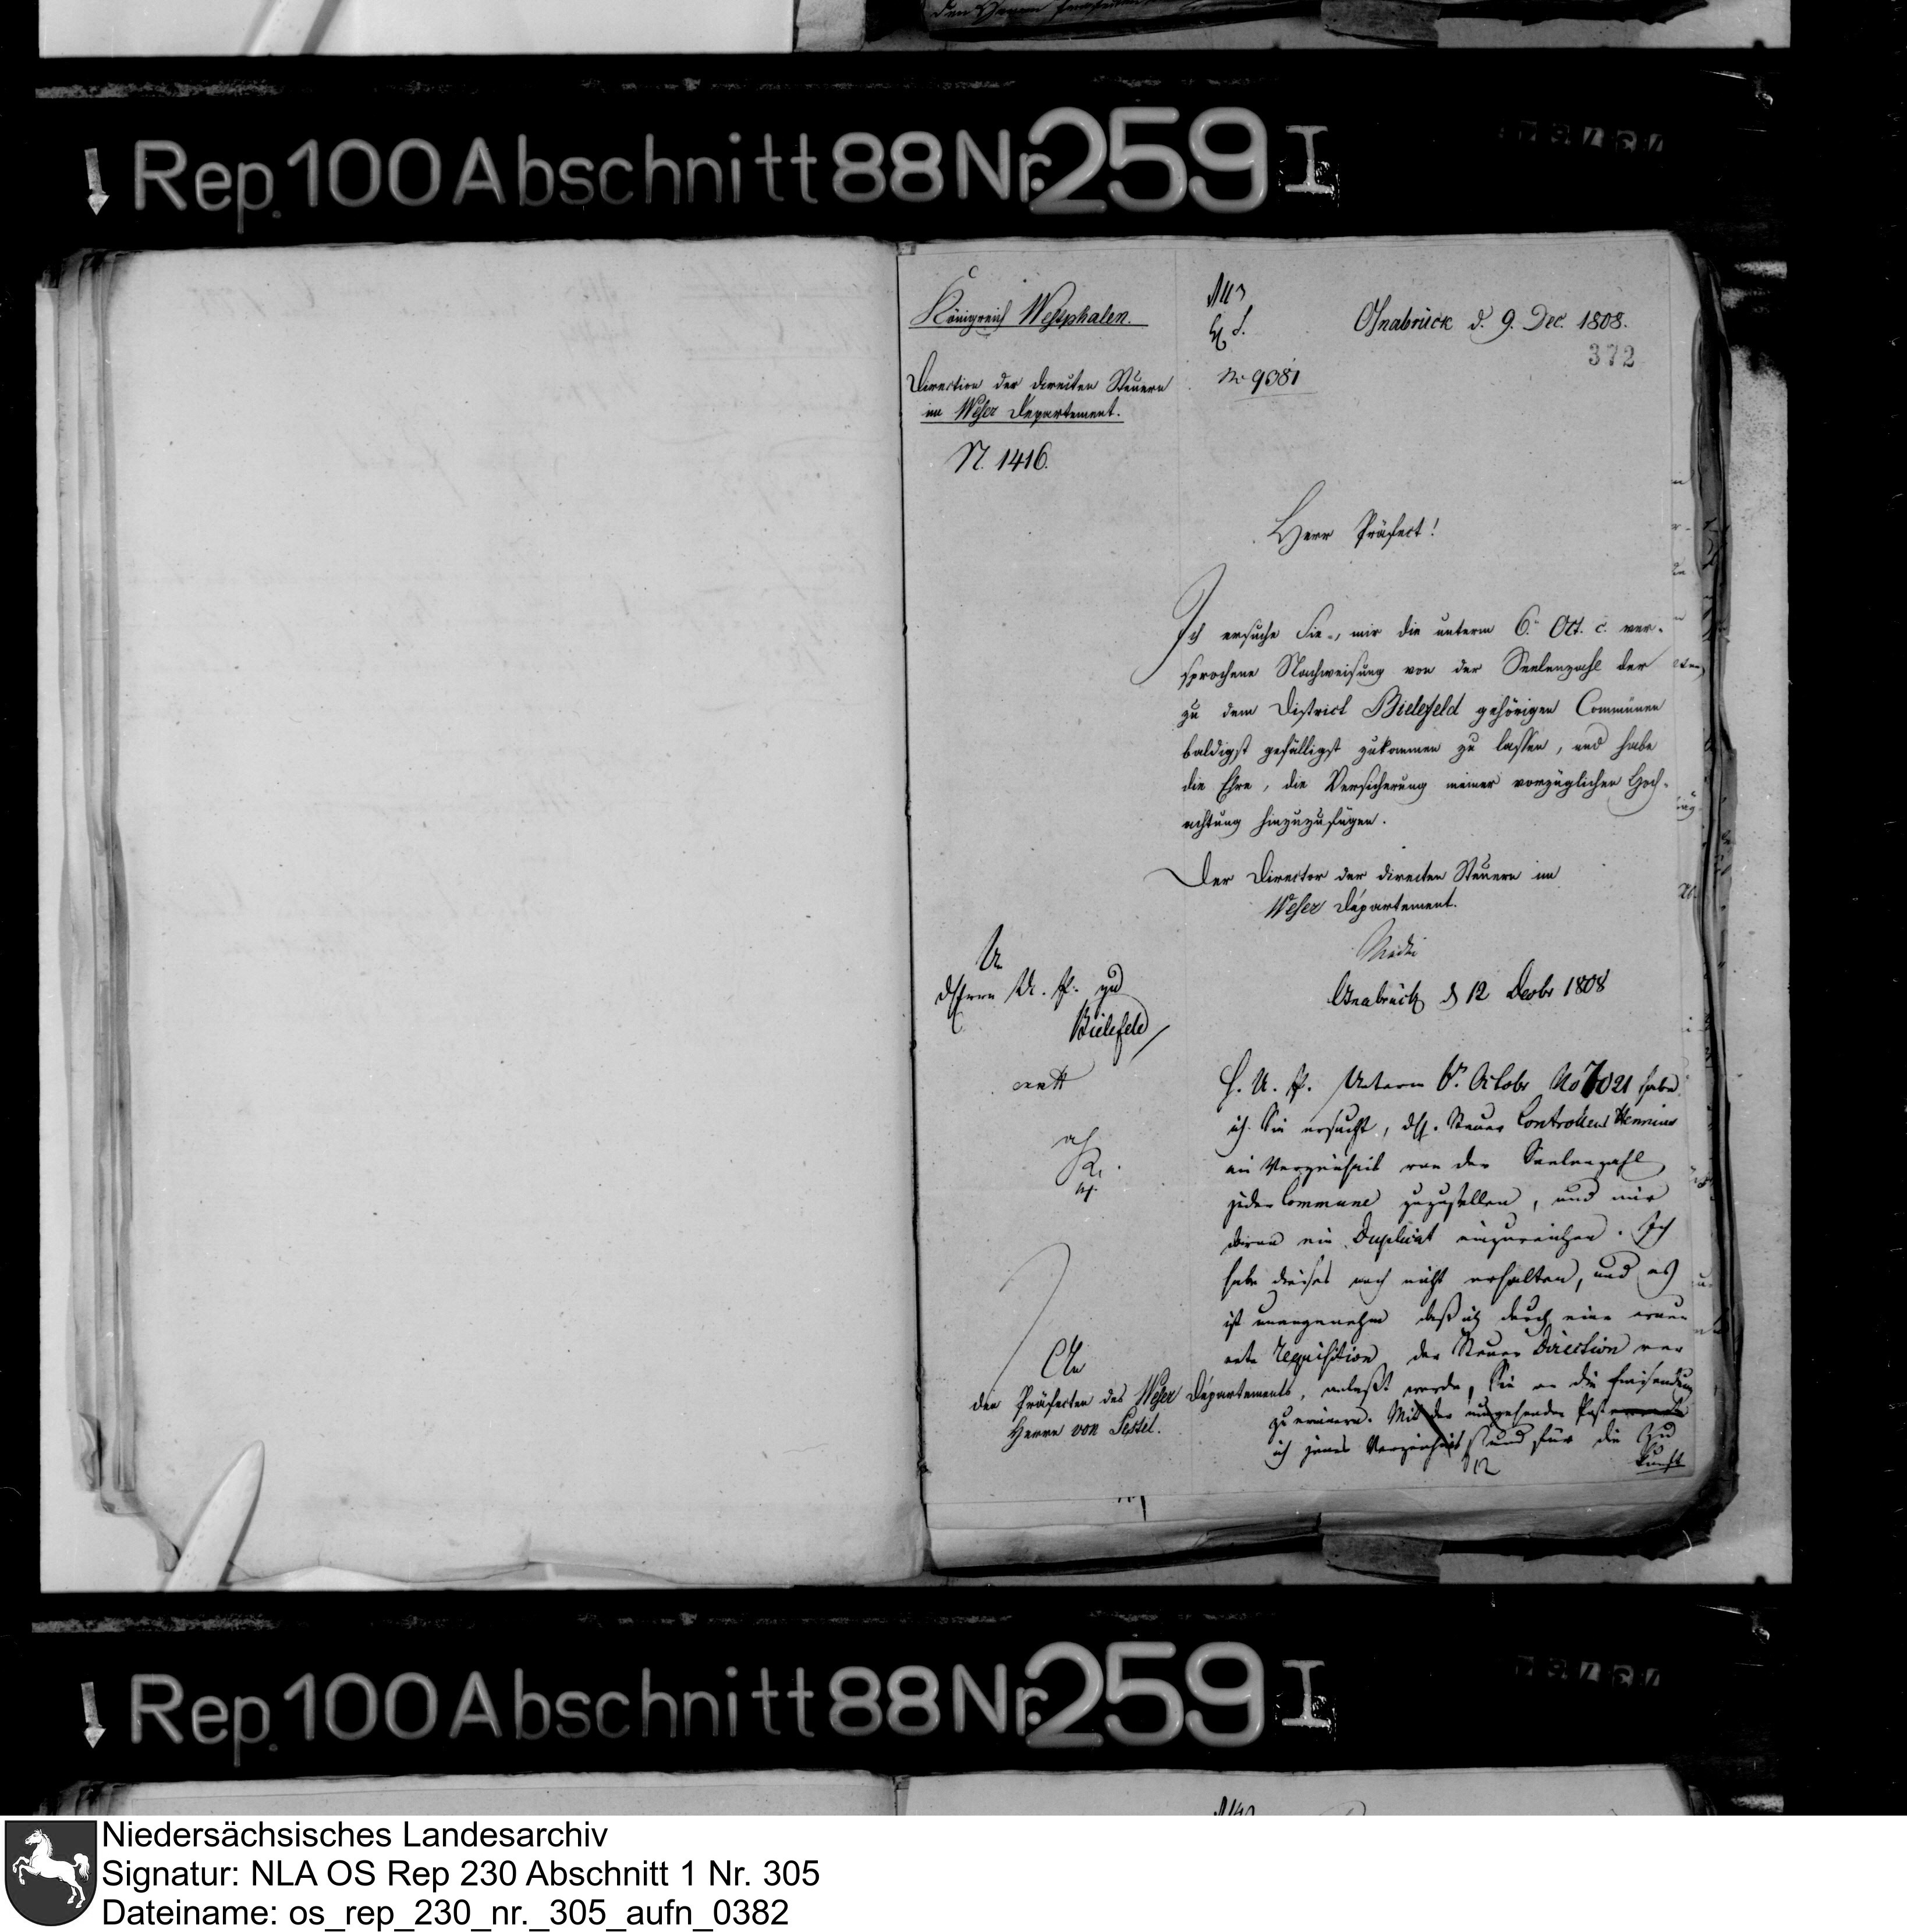 Rep. 100 Abschnitt 88 Nr. 259 I
Königreich Westphalen.
Direction der directen Steuern
im Weser Departement.
N. 1416.
No 9081
Osnabrück d. 9. Dec. 1808.
372
Herr Präfect!
Ich ersuche Sie, mir die unterm 6. Oct. c. ver-
sprochene Nachweisung von der Seelenzahl der
zu dem District Bielefeld gehörigen Communen
baldigst gefälligst zukommen zu lassen, und habe
die Ehre, die Versicherung meiner vorzüglichen Hoch-
achtung hinzuzufügen.
Der Director der directen Steuern im
Weser Département.
An
den Präfecten des Weser Départements,
Herrn von Pestel.
An
Herrn U. P. zu
Bielefeld
Osnabrück d 12 Decbr 1808
H. U. P. Unterm 6n. Octobr No 7021 habe
ich Sie ersucht, dH. Steuer Controlleur
ein Verzeichniß von der Seelenzahl
jeder Commune zuzustellen, und mir
davon ein Duplicat einzureichen. Ich
habe dieses noch nicht erhalten, und es
ist unangenehm daß ich durch eine erneu
erte Requisition der Steuer Direction ver
anlaßt werde, Sie an die Einsendung
zu erinnern. Mit der umgehenden Post
ich jenes Verzeichniß und für die Zu
kunft
Rep. 100 Abschnitt 88 Nr. 259 I
Niedersächsisches Landesarchiv
Signatur: NLA OS Rep 230 Abschnitt 1 Nr. 305
Dateiname: os_rep_230_nr._305_aufn_0382